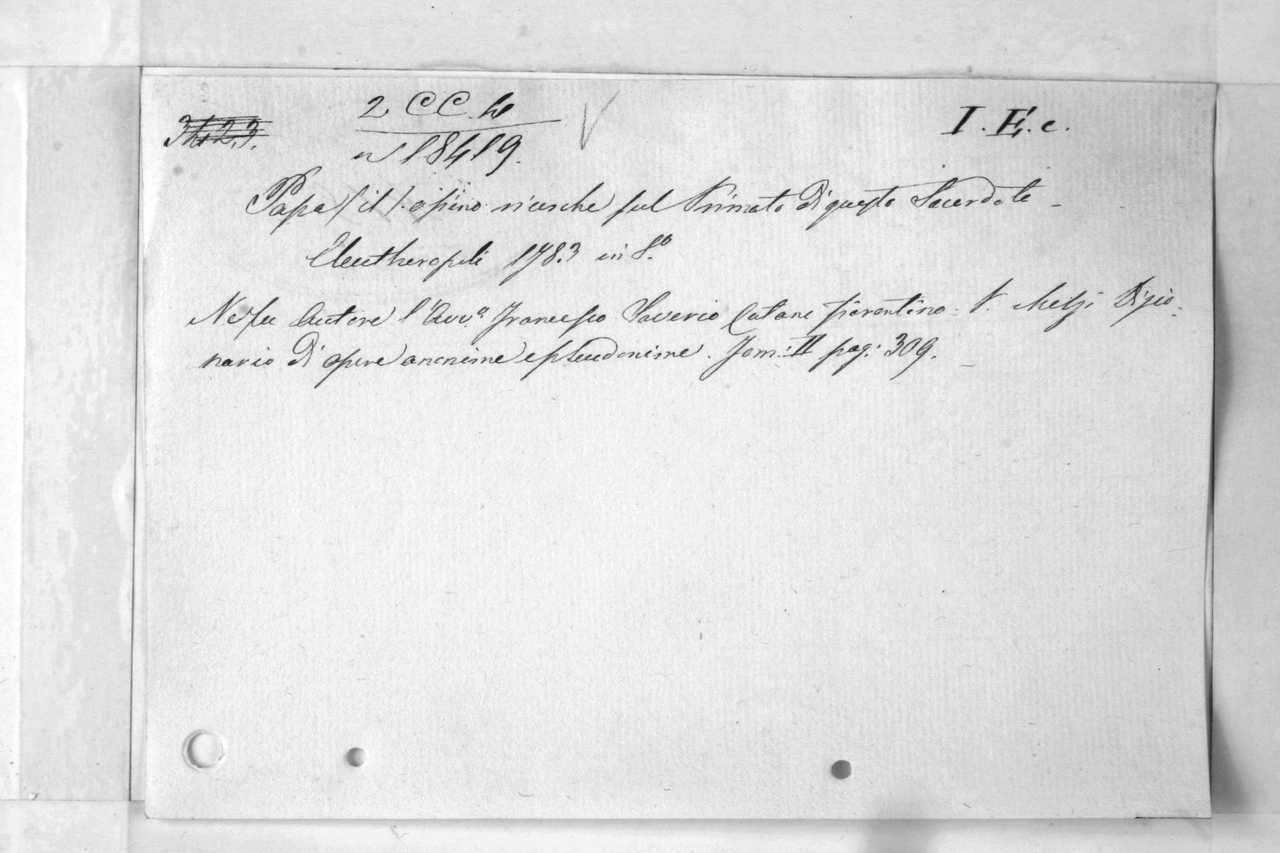 2 CC. I. É. c.
n 18419.
Papa (il) ossieno ricerche sul Primato di questo Sacerdote
Eleutheropoli 1783 in 8.º
Ne fu Autore l'Avv.º Francesco Saverio Catani fiorentino. V. Melzi Dizio-
nario di opere anonime e pseudonime. Tom: II pag: 309.